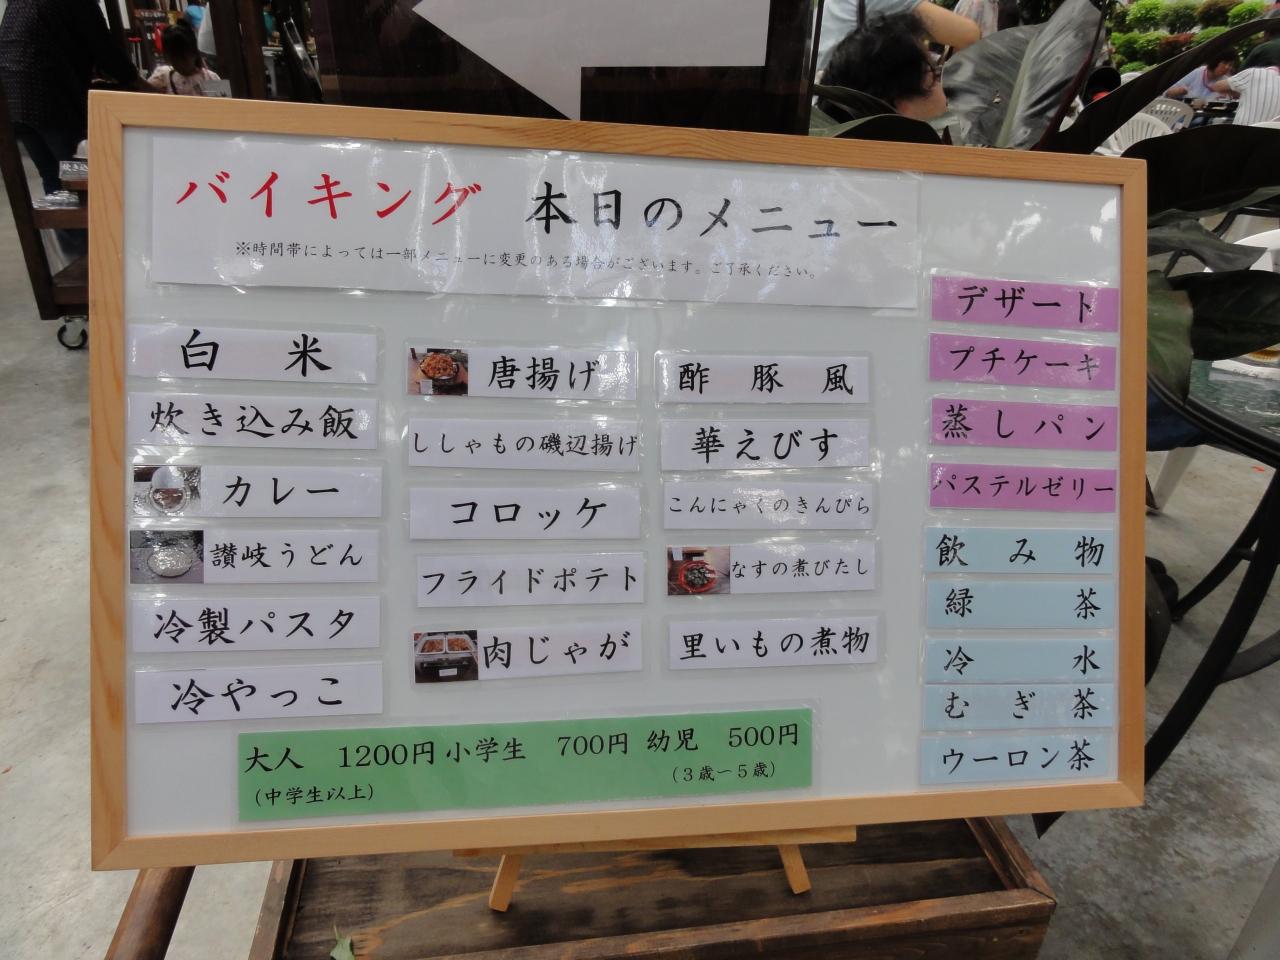 バイキング 本日のメニュー
※時間帯によっては一部メニューに変更のある場合がございます。ご了承ください。
白米
炊き込み飯
カレー
讃岐うどん
冷製パスタ
冷やっこ
唐揚げ
ししゃもの磯辺揚げ
コロッケ
フライドポテト
肉じゃが
酢豚風
華えびす
こんにゃくのきんぴら
なすの煮びたし
里いもの煮物
デザート
プチケーキ
蒸しパン
パステルゼリー
飲み物
緑茶
冷水
むぎ茶
ウーロン茶
大人 1200円 小学生 700円 幼児 500円
(中学生以上) (3歳〜5歳)